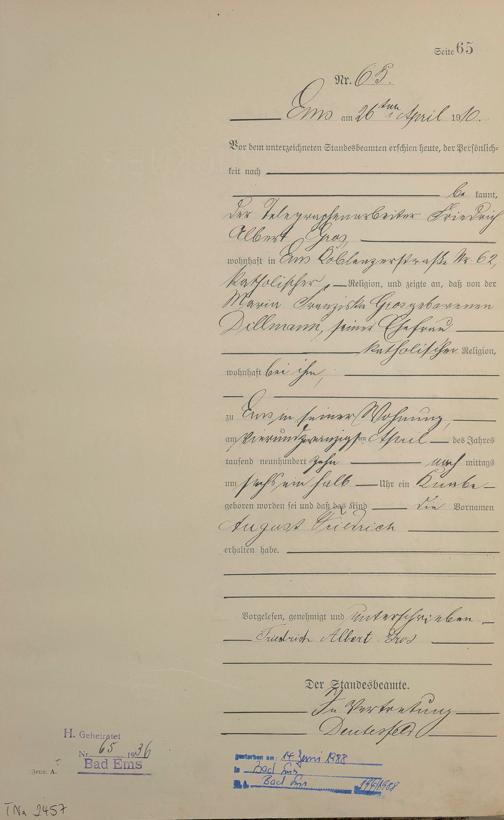 Seite 65
Nr. 65.
Ems am 26ten April 1910.
Vor dem unterzeichneten Standesbeamten erschien heute, der Persönlich-
keit nach
be kannt,
der Telegraphenarbeiter Friedrich
Albert Gros,
wohnhaft in Ems Coblenzerstraße Nr. 62,
katholischer Religion, und zeigte an, daß von der
Maria Franziska Gros geborenen
Dillmann, seiner Ehefrau
katholischer Religion,
wohnhaft bei ihm,
zu Ems in seiner Wohnung,
am vierundzwanzigsten April des Jahres
tausend neunhundert zehn nach mittags
um sechs ein halb Uhr ein Knabe
geboren worden sei und daß das Kind die Vornamen
August Friedrich
erhalten habe.
Vorgelesen, genehmigt und unterschrieben
Friedrich Albert Gros
Der Standesbeamte.
In Vertretung
H. Geheiratet
Nr. 65 1936
Bad Ems
gestorben am: 14 Juni 1988
in Bad Ems
Bad Ems
A.